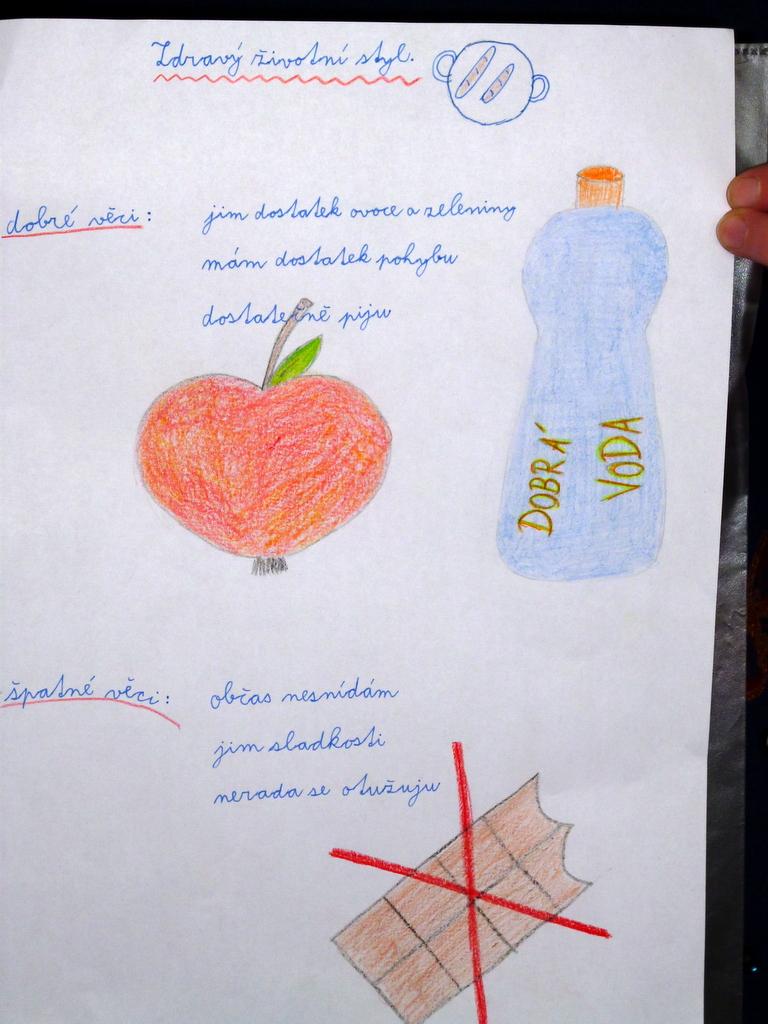 Zdravý životní styl.
dobré věci: jim dostatek ovoce a zeleniny
mám dostatek pohybu
dostatečně piju
DOBRÁ
VODA
špatné věci: občas nesnídám
jim sladkosti
nerada se otužuju